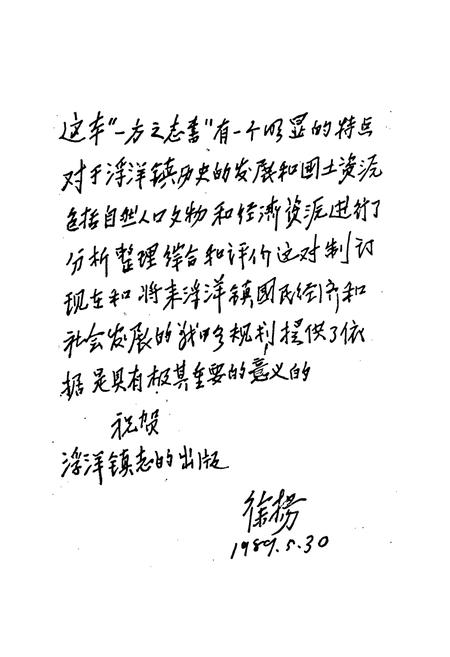 这本"一方之志书"有一个明显的特点
对于浮洋镇历史的发展和国土资源
包括自然人口文物和经济资源进行了
分析整理综合和评价这对制订
现在和将来浮洋镇國民经济和
社会发展的战略规划提供了依
据是具有极其重要的意义的
祝贺
浮洋镇志的出版
徐扬
1989.5.30